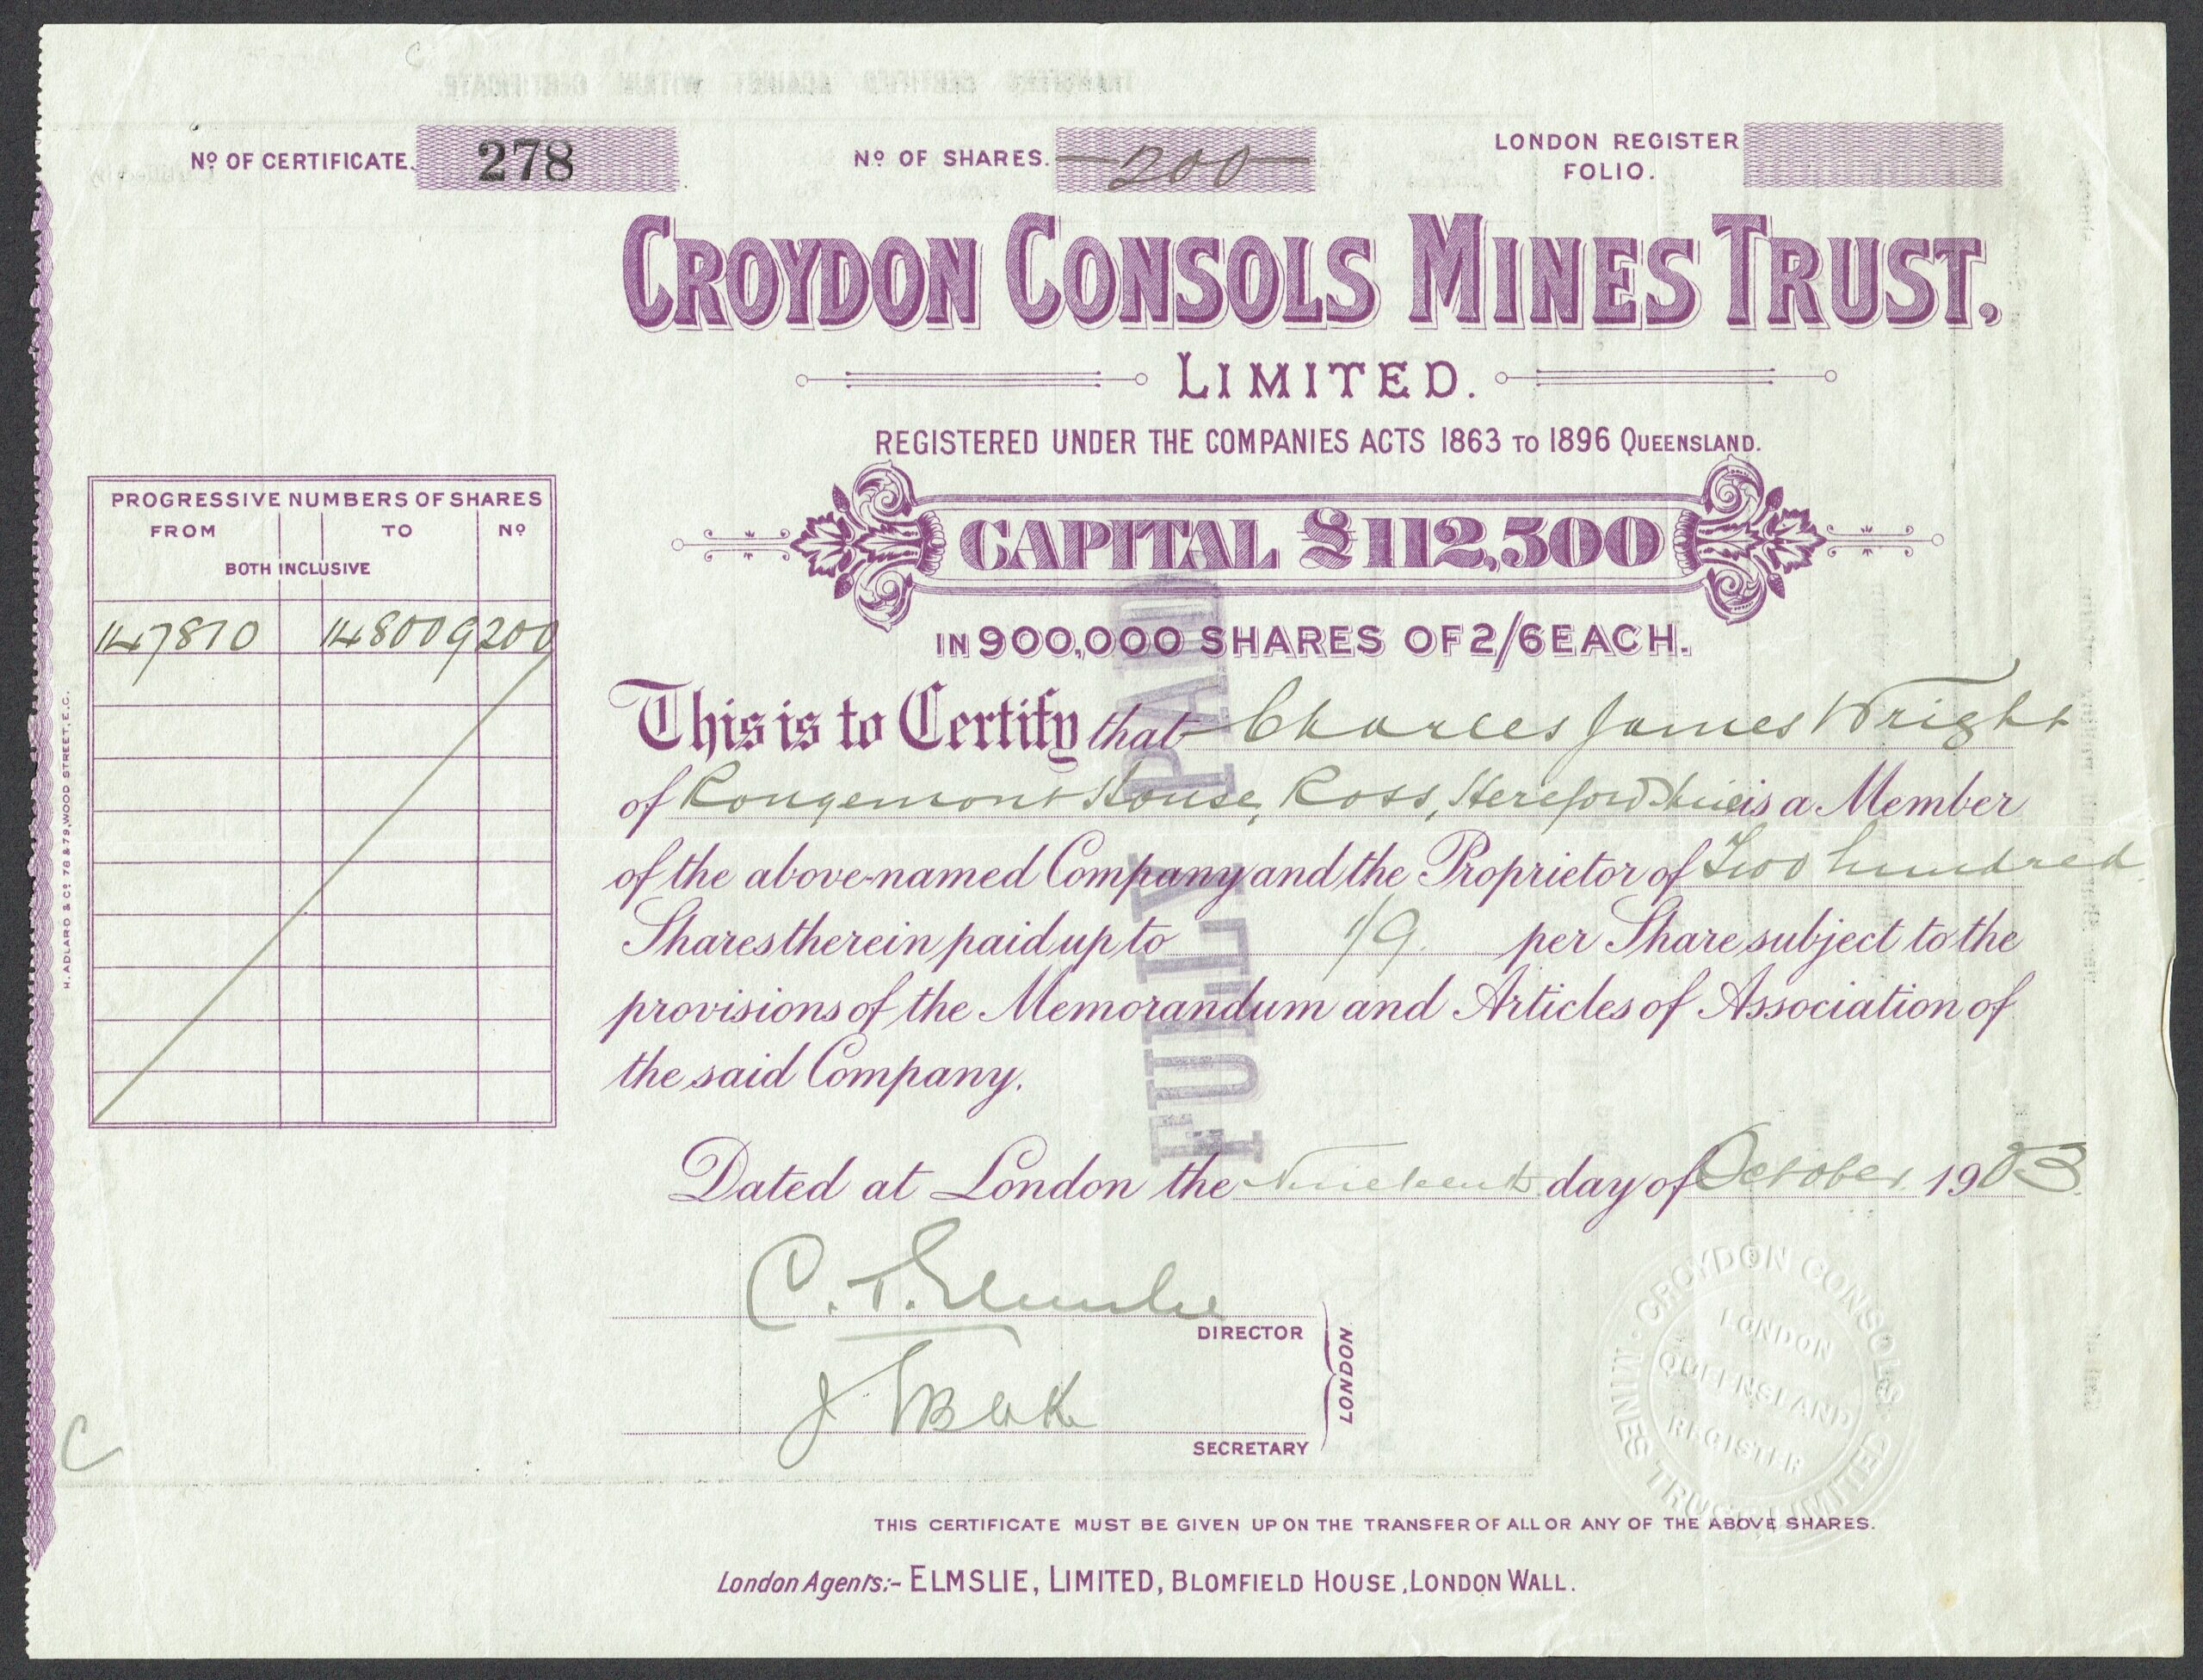 Nº OF CERTIFICATE. 278
Nº OF SHARES. 200
LONDON REGISTER
FOLIO.
CROYDON CONSOLS MINES TRUST,
LIMITED.
REGISTERED UNDER THE COMPANIES ACTS 1863 TO 1896 QUEENSLAND.
CAPITAL £112,500
IN 900,000 SHARES OF 2/6 EACH.
PROGRESSIVE NUMBERS OF SHARES
FROM TO Nº
BOTH INCLUSIVE
147810 148009 200
This is to Certify that Charles James Wright
of Rougemont House, Ross, Herefordshire is a Member
of the above-named Company and the Proprietor of Two hundred
Shares therein paid up to 1/9 per Share subject to the
provisions of the Memorandum and Articles of Association of
the said Company.
FULLY PAID
Dated at London the Nineteenth day of October 1903
C. T. Elmslie
DIRECTOR
J.
SECRETARY
LONDON
C
CROYDON CONSOLS MINES TRUST, LIMITED
LONDON
QUEENSLAND
REGISTER
THIS CERTIFICATE MUST BE GIVEN UP ON THE TRANSFER OF ALL OR ANY OF THE ABOVE SHARES.
London Agents:- ELMSLIE, LIMITED, BLOMFIELD HOUSE, LONDON WALL.
H. ADLARD & Cº 78 & 79, WOOD STREET, E.C.
TRANSFERS CERTIFIED AGAINST WITHIN CERTIFICATE.